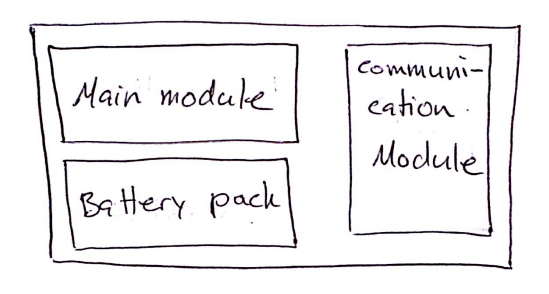 Main module
Battery pack
communi-
cation
Module